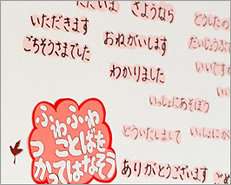 ただいま
さようなら
いただきます
ごちそうさまでした
おねがいします
わかりました
どうしたの
いいですか
いっしょにあそぼう
どういたしまして
いっしょに
ありがとうございます
ふわふわ
ことばを
つかってはなそう